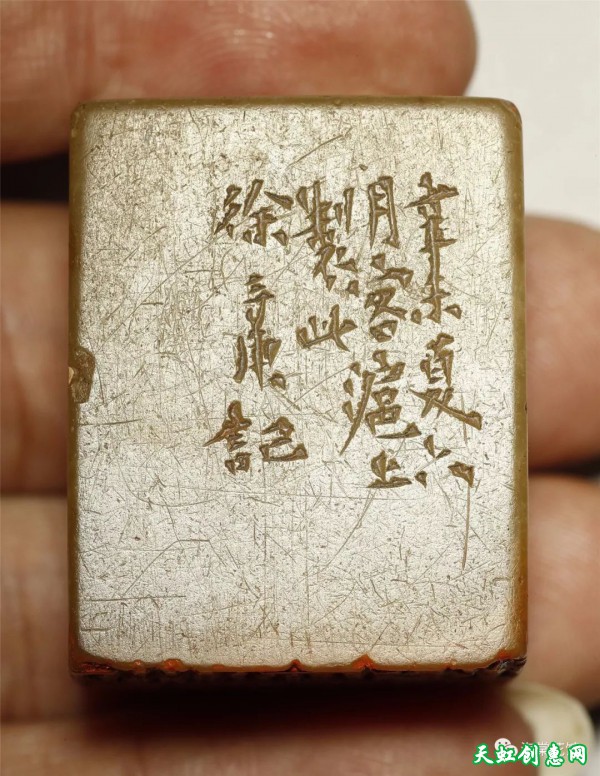 辛未夏六
月客滬上
製此
徐三庚記
天虹创惠网